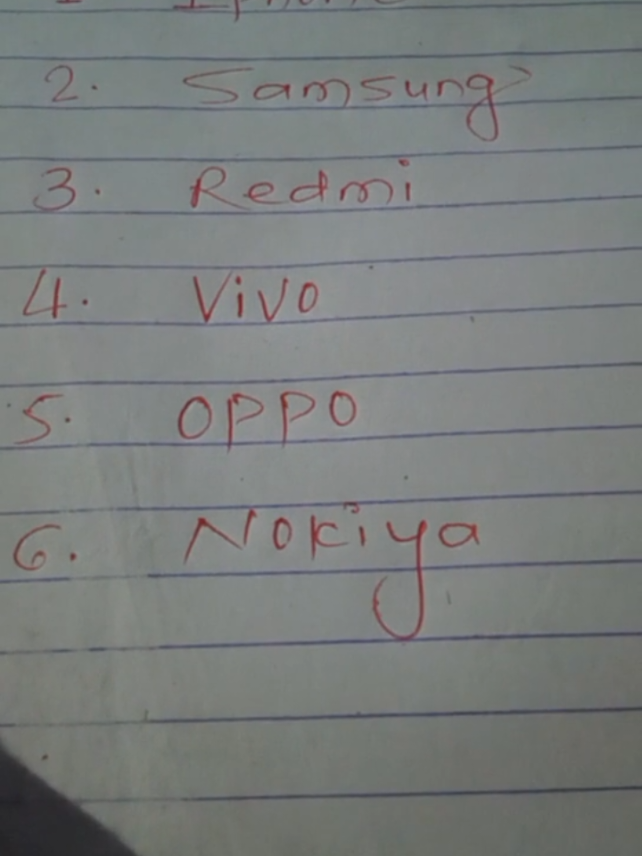 2. Samsung
3. Redmi
4. Vivo
5. OPPO
6. Nokiya